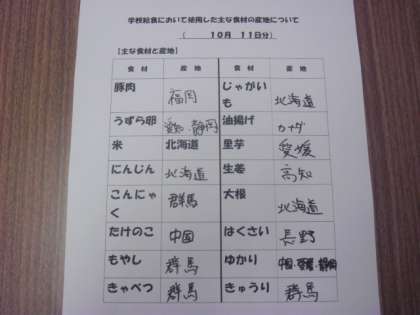 学校給食において使用した主な食材の産地について
( 10月 11日分)
【主な食材と産地】
食 材 産 地 食 材 産 地
豚肉 福岡 じゃがいも 北海道
うずら卵 愛知・静岡 油揚げ カナダ
米 北海道 里芋 愛媛
にんじん 北海道 生姜 高知
こんにゃく 群馬 大根 北海道
たけのこ 中国 はくさい 長野
もやし 群馬 ゆかり 中国・静岡
きゃべつ 群馬 きゅうり 群馬